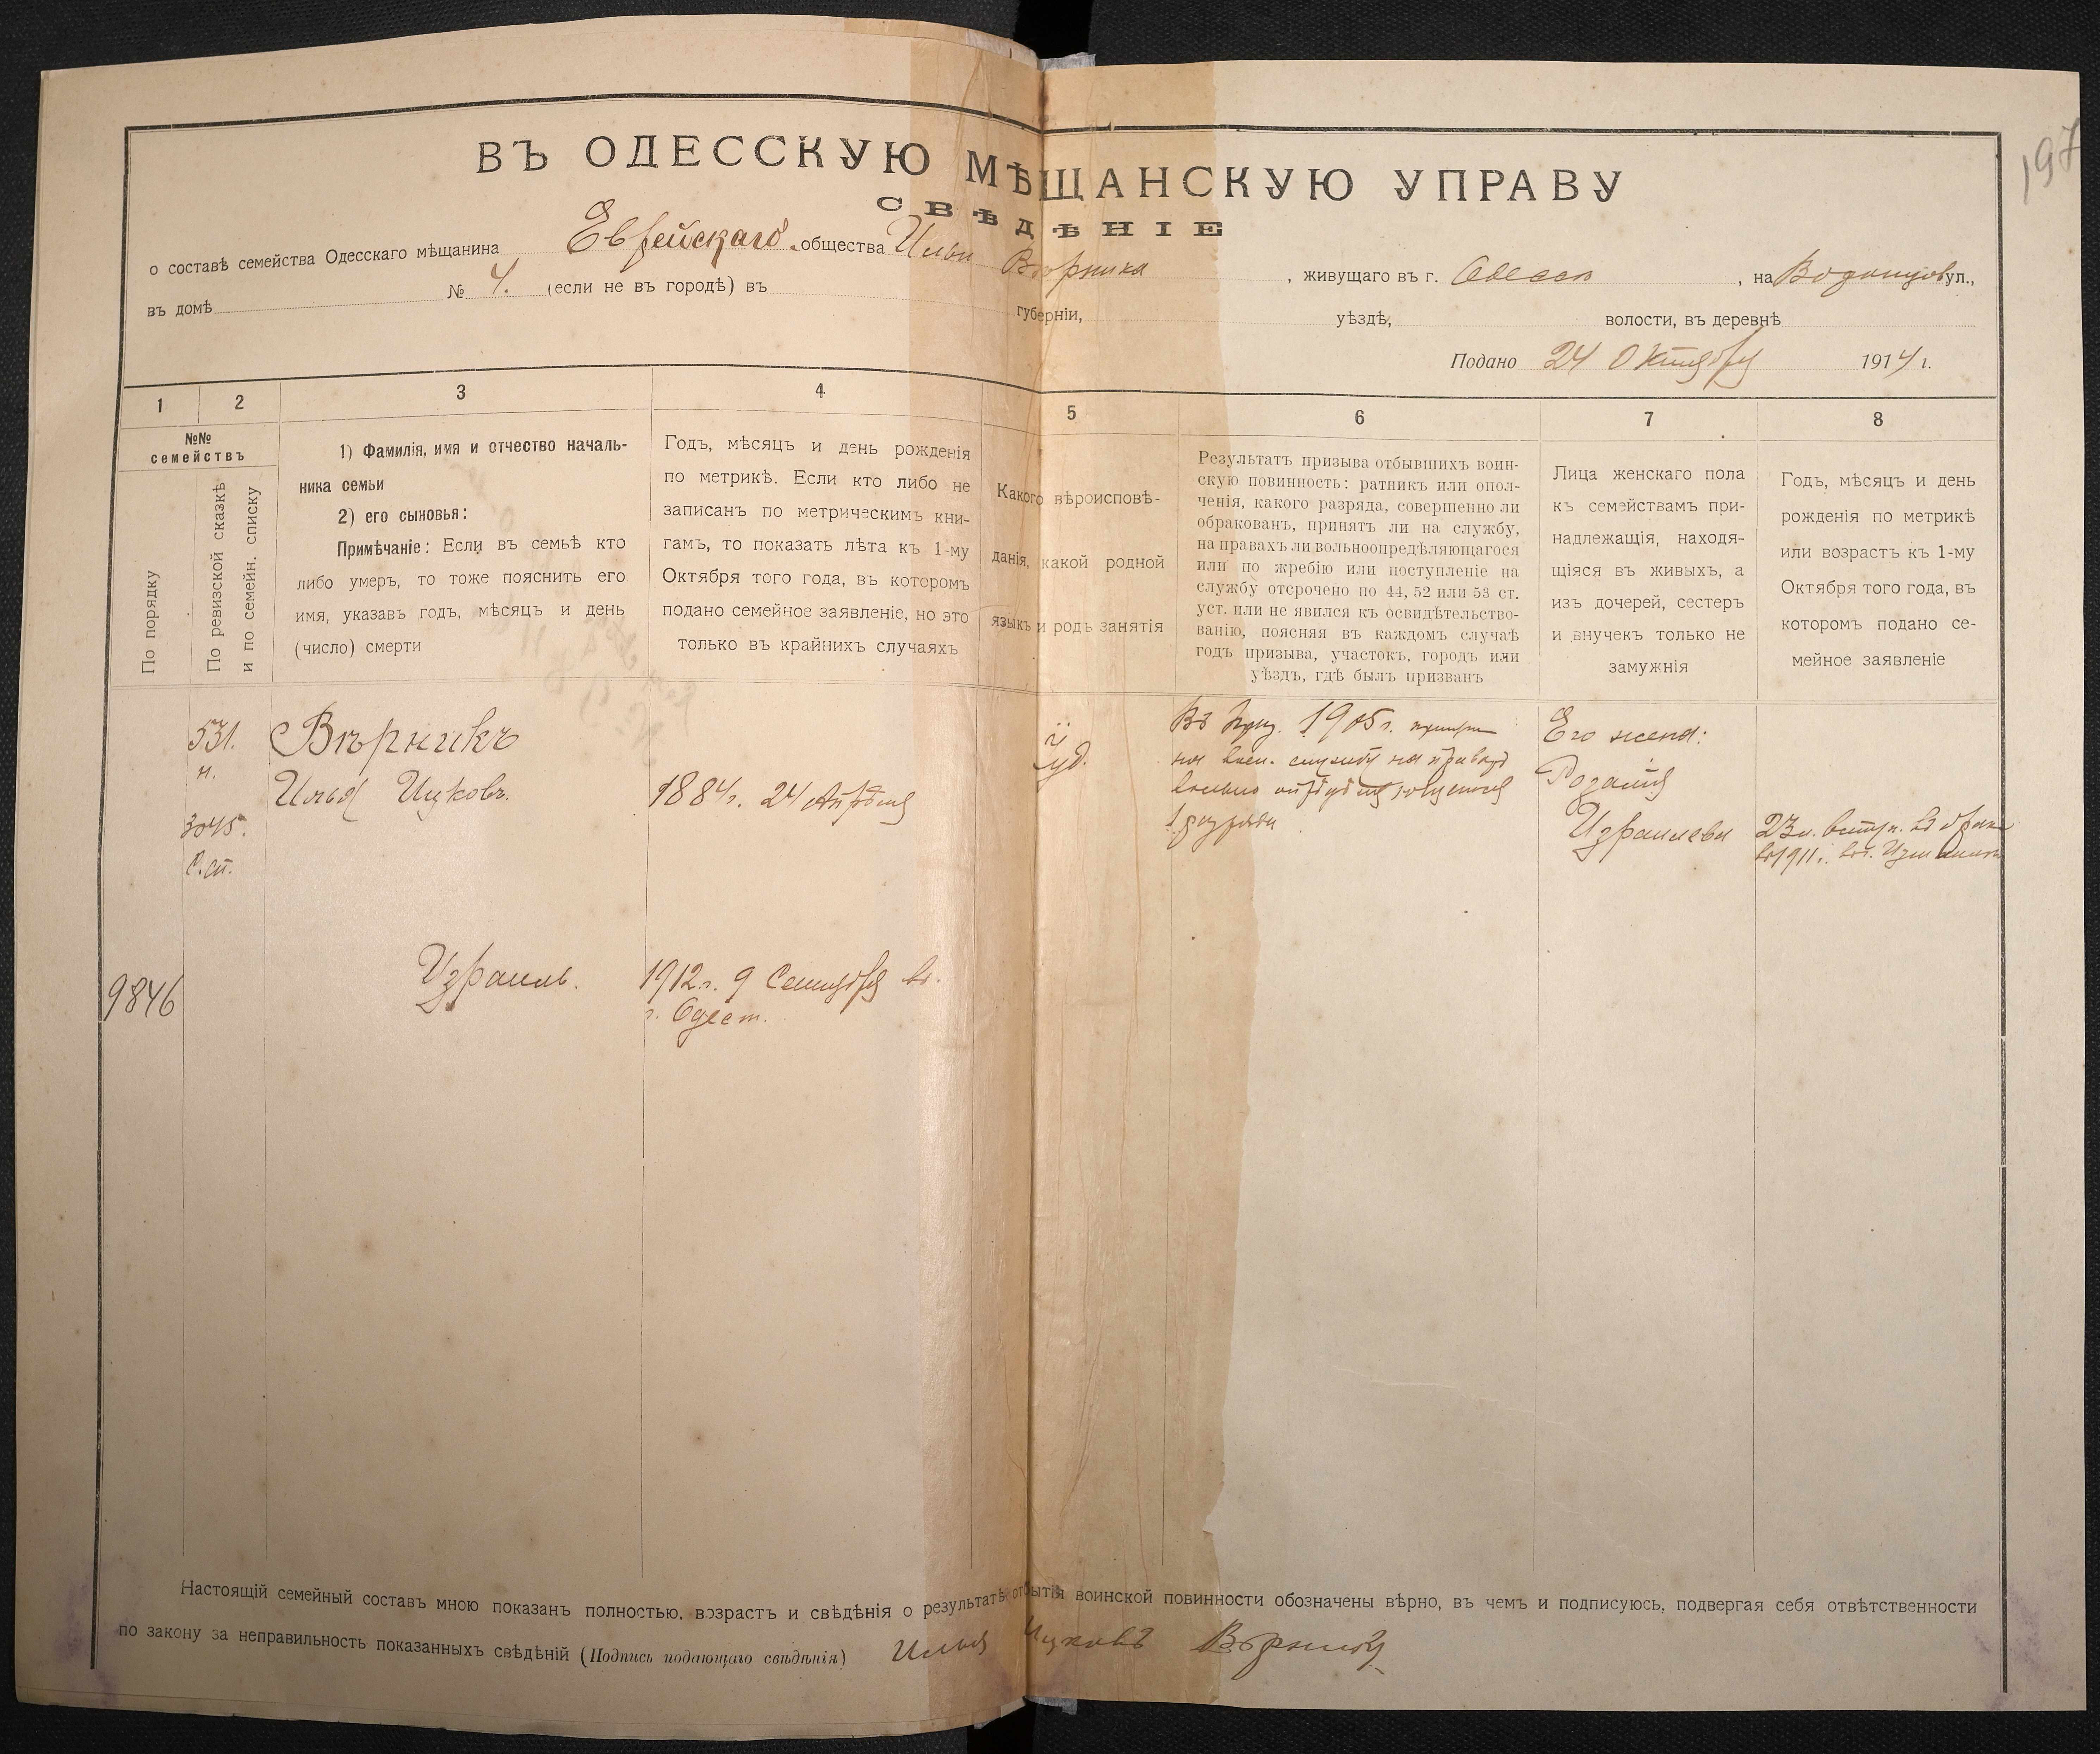 197
ВЪ ОДЕССКУЮ МѢЩАНСКУЮ УПРАВУ
СВѢДѢНІЕ
о составѣ семейства Одесскаго мѣщанина Еврейскаго общества Ильи Вѣрника, живущаго въ г. Одессѣ, на ул.,
въ домѣ № 4. (если не въ городѣ) въ губерніи, уѣздѣ, волости, въ деревнѣ
Подано 24 Октября 1914 г.
1 2 3 4 5 6 7 8
№№
семействъ
По порядку
По ревизской сказкѣ
и по семейн. списку
1) Фамилія, имя и отчество началь-
ника семьи
2) его сыновья:
Примѣчаніе: Если въ семьѣ кто
либо умеръ, то тоже пояснить его
имя, указавъ годъ, мѣсяцъ и день
(число) смерти
Годъ, мѣсяцъ и день рожденія
по метрикѣ. Если кто либо не
записанъ по метрическимъ кни-
гамъ, то показать лѣта къ 1-му
Октября того года, въ которомъ
подано семейное заявленіе, но это
только въ крайнихъ случаяхъ
Какого вѣроисповѣ-
данія, какой родной
языкъ и родъ занятія
Результатъ призыва отбывшихъ воин-
скую повинность: ратникъ или опол-
ченія, какого разряда, совершенно ли
обракованъ, принятъ ли на службу,
на правахъ ли вольноопредѣляющагося
или по жребію или поступленіе на
службу отсрочено по 44, 52 или 53 ст.
уст. или не явился къ освидѣтельство-
ванію, поясняя въ каждомъ случаѣ
годъ призыва, участокъ, городъ или
уѣздъ, гдѣ былъ призванъ
Лица женскаго пола
къ семействамъ при-
надлежащія, находя-
щіяся въ живыхъ, а
изъ дочерей, сестеръ
и внучекъ только не
замужнія
Годъ, мѣсяцъ и день
рожденія по метрикѣ
или возрастъ къ 1-му
Октября того года, въ
которомъ подано се-
мейное заявленіе
531.
н.
3045.
С.сп.
Вѣрникъ
Илья Ицковъ.
1884 г. 24 Апрѣля
Іуд.
Въ 1905 г. принят
на воен. службу на правах
вольно опредѣляющагося
1 разряда
Его жена:
Розалія
Израилева
23 л. вступ. въ бракъ
въ 1911 г.
9846
Израиль.
1912 г. 9 Сентября въ
г. Одесѣ.
Настоящій семейный составъ мною показанъ полностью, возрастъ и свѣдѣнія о результатѣ отбытія воинской повинности обозначены вѣрно, въ чемъ и подписуюсь, подвергая себя отвѣтственности
по закону за неправильность показанныхъ свѣдѣній (Подпись подающаго свѣдѣнія) Илья Ицковъ Вѣрникъ